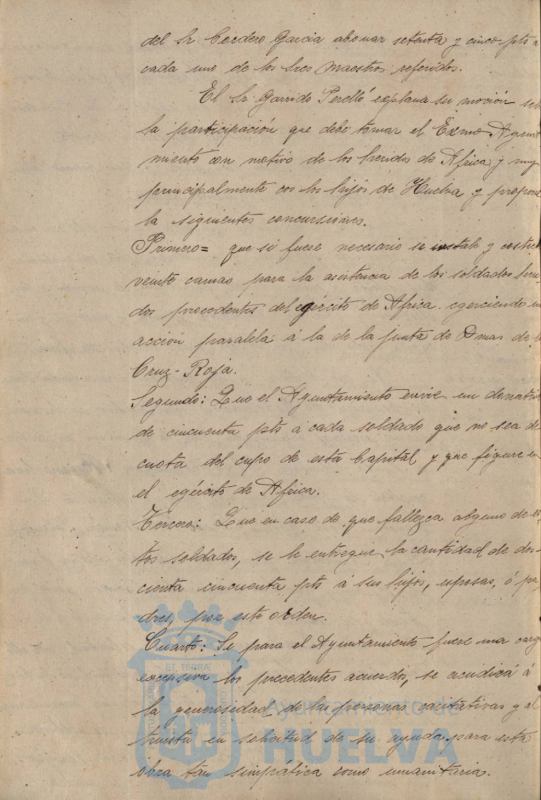 del Sr Cordero Garcia abonar setenta y cinco pts a
cada uno de los tres maestros referidos.
El Sr Garrido Perelló explana su moción so
la participación que debe tomar el Exmo Ayunt
miento con motivo de los heridos de Africa y muy
principalmente con los hijos de Huelva y propone
la siguientes concursiones.
Primero= que si fuere necesario se instale y costee
veinte camas para la asistencia de los soldados heri
dos procedentes del egército de Africa egerciendo un
acción paralela á la de la junta de Dmas de la
Cruz-Roja.
Segundo: Que el Ayuntamiento envie un donativo
de cincuenta pts á cada soldado que no sea de
cuota del cupo de esta Capital y que figure en
el egército de Africa.
Tercero: Que en caso de que fallezca alguno de es
tos soldados, se le entregue la cantidad de dos-
cienta cincuenta pts á sus hijos, esposas, ó pa
dres, por este orden.
Cuarto: Si para el Ayuntamiento fuere una carga
excesiva los precedentes acuerdos, se acudirá á
la generosidad de las personas caritativas y al
truista en solicitud de su ayuda para esta
obra tan simpática como umanitaria.
Ayuntamiento de
HUELVA